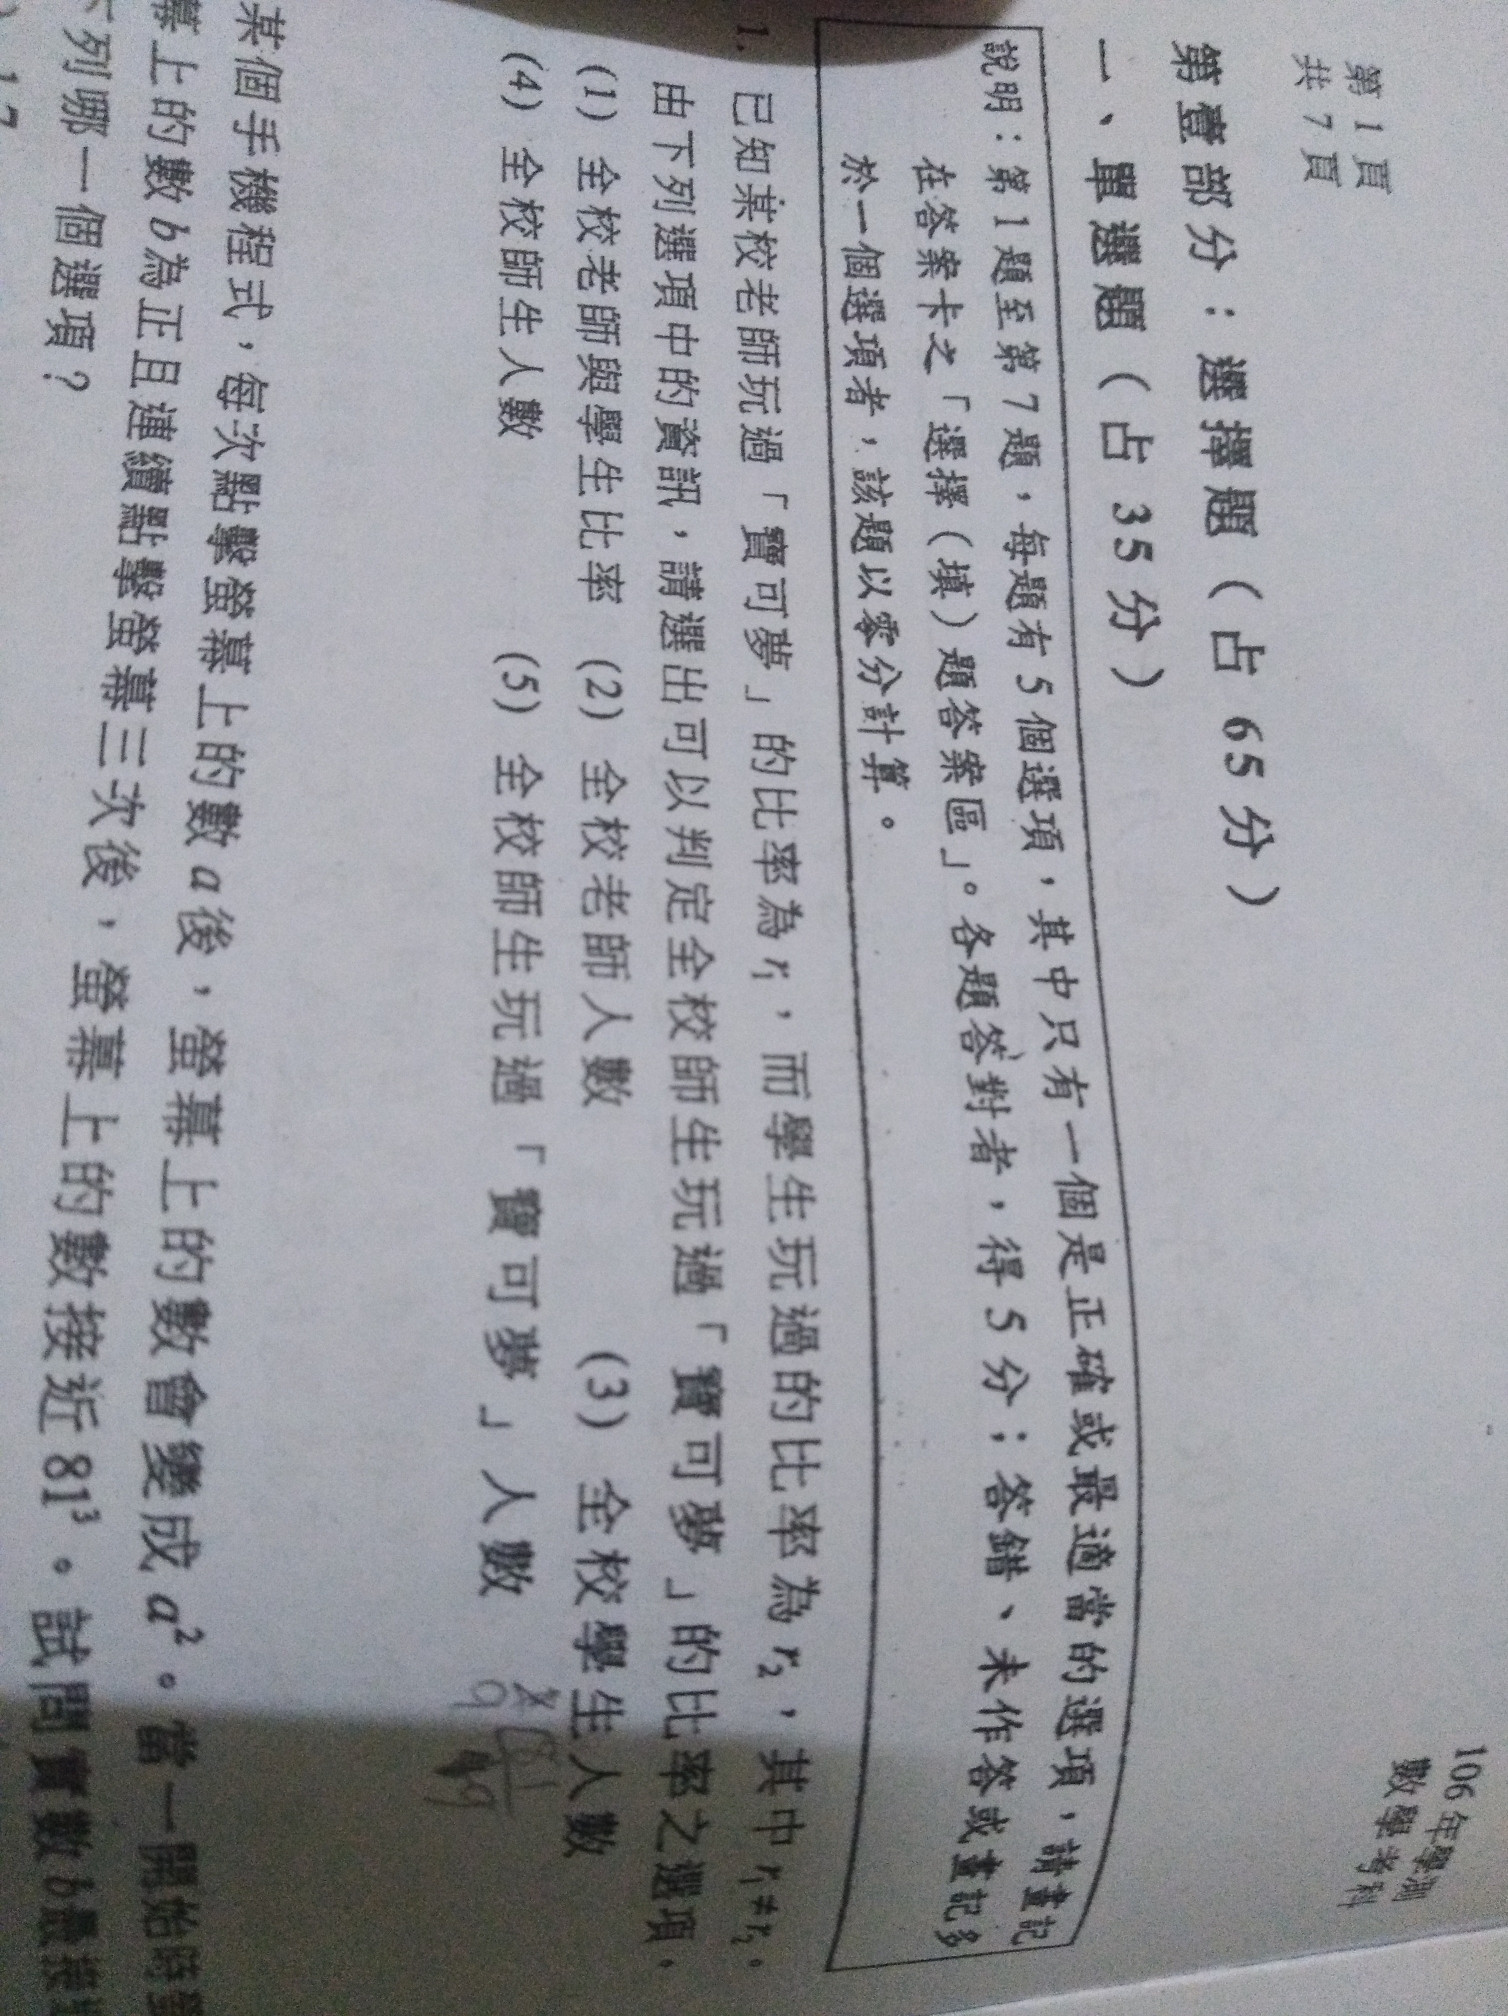 第 1 頁
共 7 頁
106 年學測
數學考科
第壹部分：選擇題（占 65 分）
一、單選題（占 35 分）
說明：第 1 題至第 7 題，每題有 5 個選項，其中只有一個是正確或最適當的選項，請畫記
在答案卡之「選擇（填）題答案區」。各題答對者，得 5 分；答錯、未作答或畫記多
於一個選項者，該題以零分計算。
1. 已知某校老師玩過「寶可夢」的比率為 r₁，而學生玩過的比率為 r₂，其中 r₁≠r₂。
由下列選項中的資訊，請選出可以判定全校師生玩過「寶可夢」的比率之選項。
(1) 全校老師與學生比率 (2) 全校老師人數 (3) 全校學生人數
(4) 全校師生人數 (5) 全校師生玩過「寶可夢」人數
某個手機程式，每次點擊螢幕上的數 a 後，螢幕上的數會變成 a²。當一開始時螢
幕上的數 b 為正且連續點擊螢幕三次後，螢幕上的數接近 81³。試問實數 b 最接
下列哪一個選項？
1.7